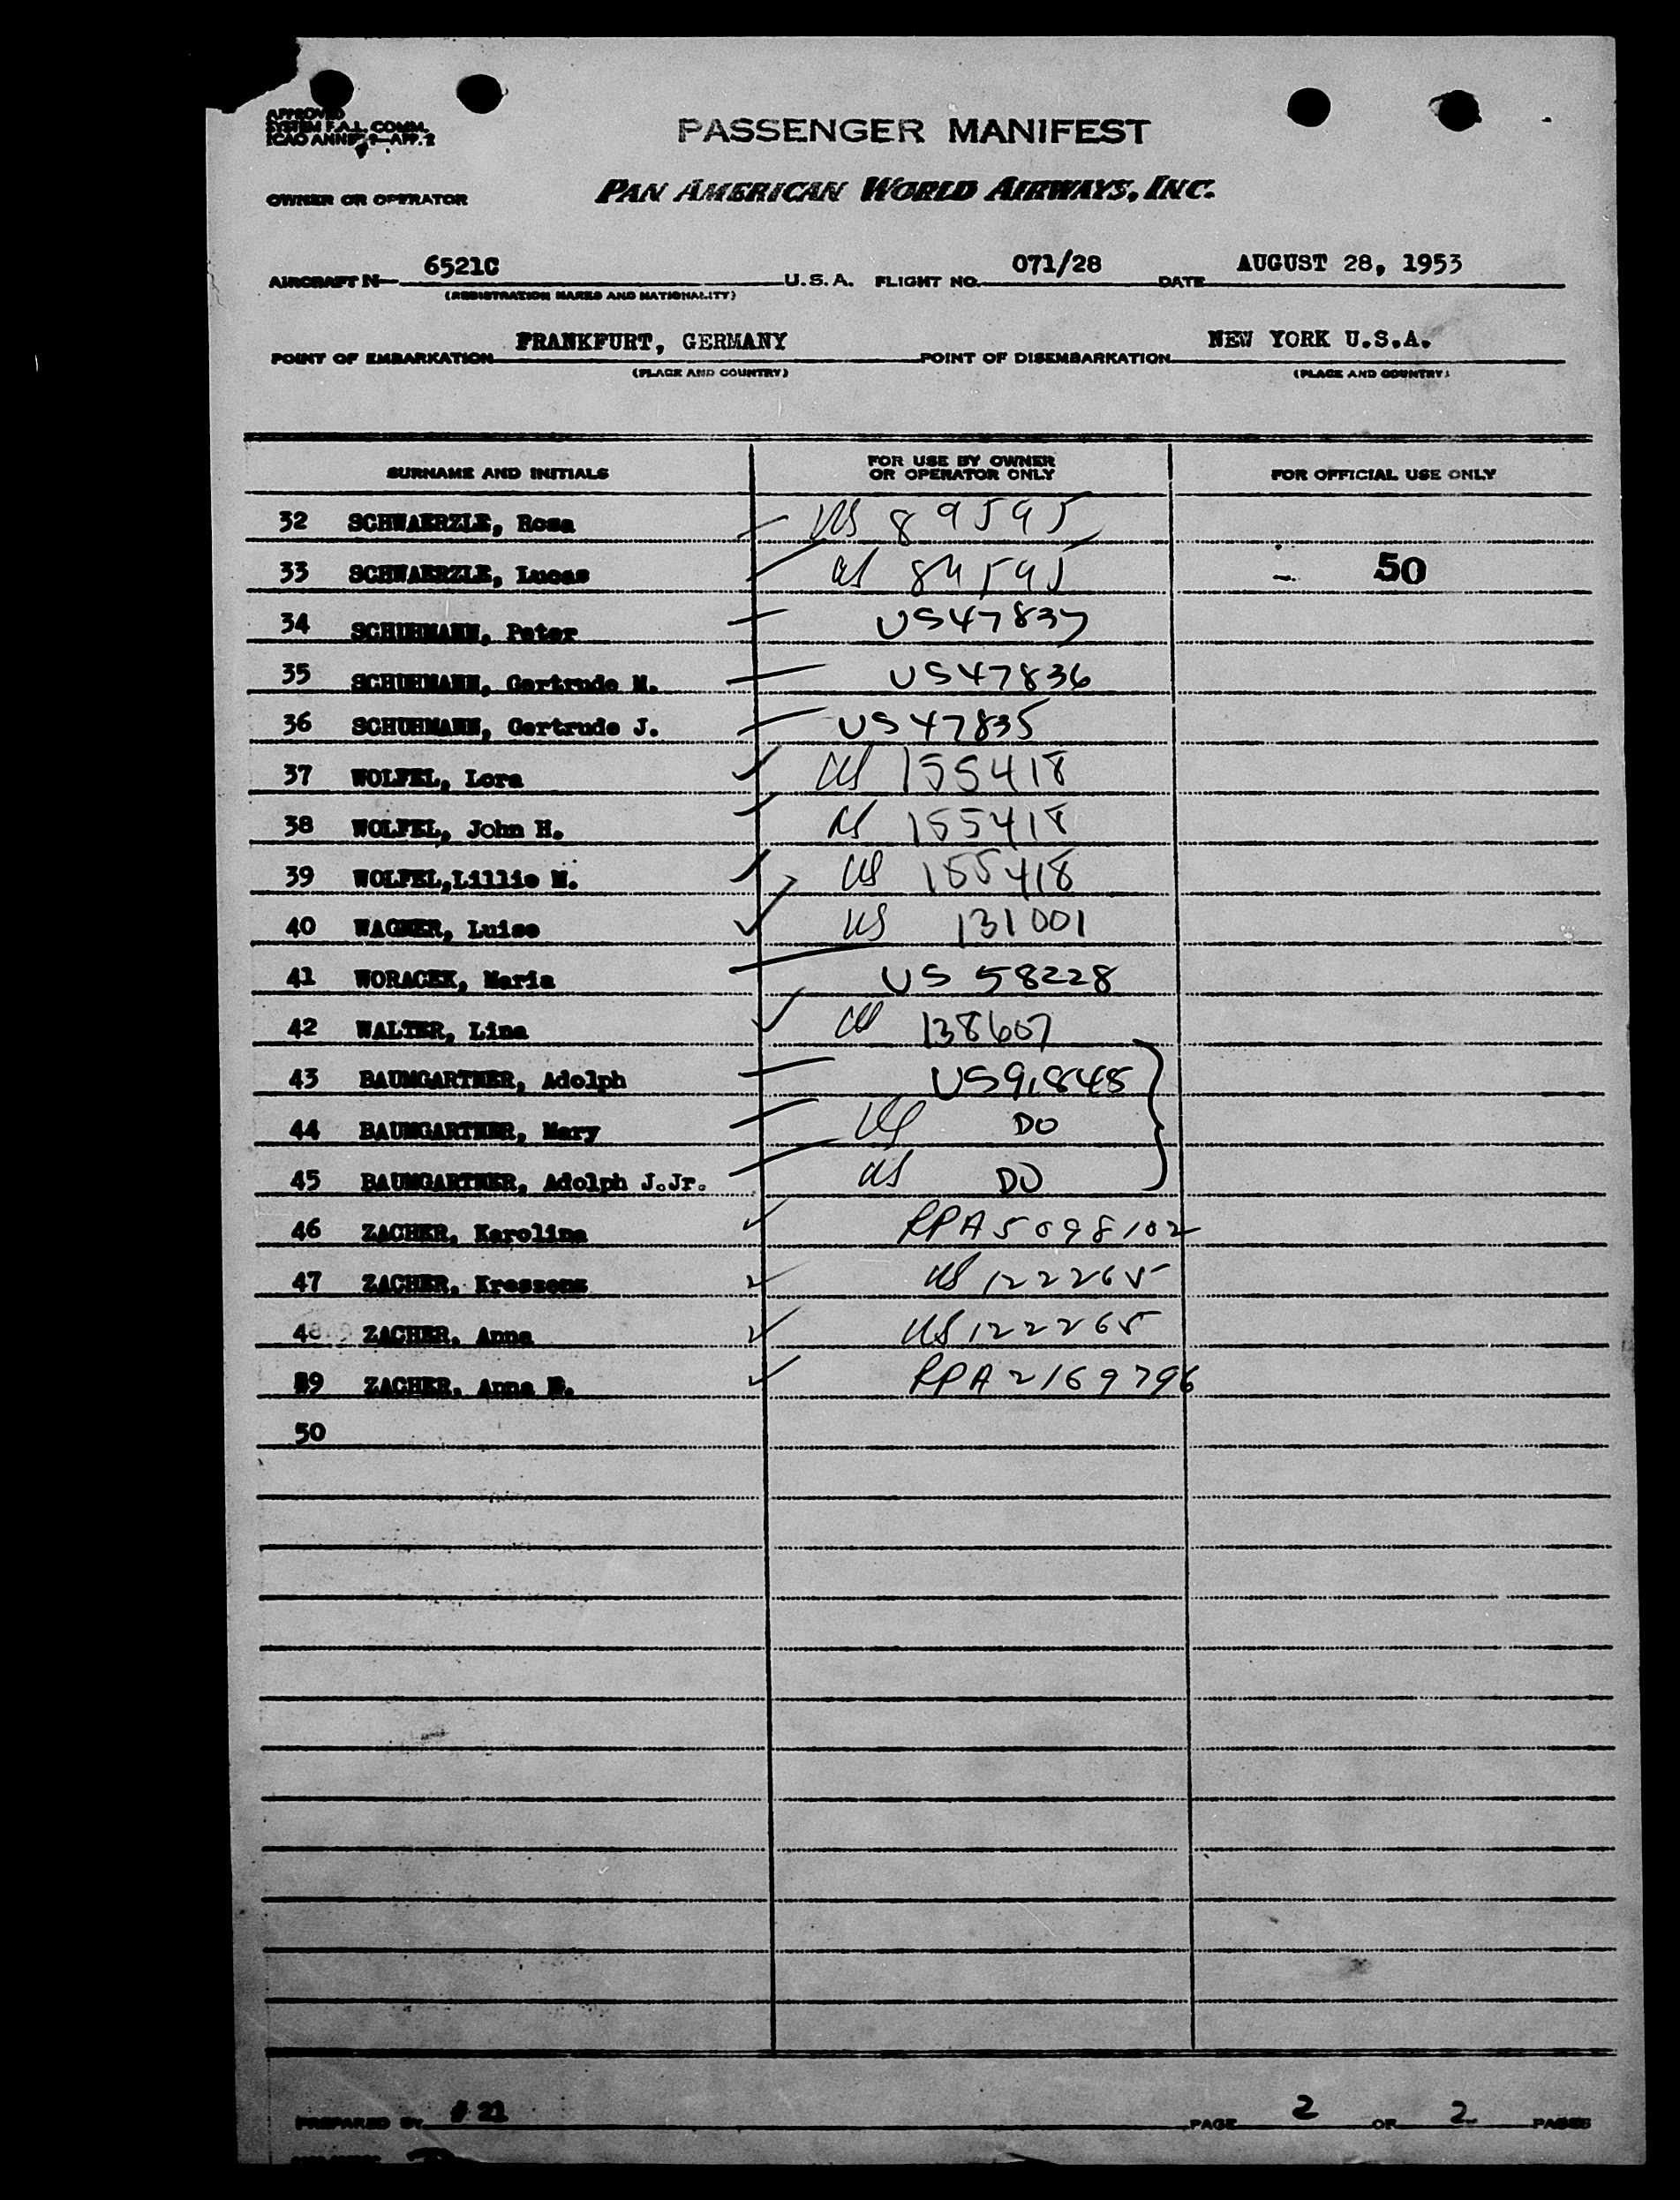 APPROVED
SYSTEM F.A.L. COMM.
ICAO ANNEX 9—APP. 2
PASSENGER MANIFEST
OWNER OR OPERATOR PAN AMERICAN WORLD AIRWAYS, INC.
AIRCRAFT N— 6521C U.S.A. FLIGHT NO. 071/28 DATE AUGUST 28, 1953
(REGISTRATION MARKS AND NATIONALITY)
POINT OF EMBARKATION FRANKFURT, GERMANY POINT OF DISEMBARKATION NEW YORK U.S.A.
(PLACE AND COUNTRY) (PLACE AND COUNTRY)
SURNAME AND INITIALS FOR USE BY OWNER OR OPERATOR ONLY FOR OFFICIAL USE ONLY
32 SCHWAERZLE, Rosa US 89595
33 SCHWAERZLE, Lucas US 89595 50
34 SCHUHMANN, Peter US47837
35 SCHUHMANN, Gertrude M. US47836
36 SCHUHMANN, Gertrude J. US47835
37 WOLFEL, Lora US 155418
38 WOLFEL, John H. US 155418
39 WOLFEL,Lillie M. US 155418
40 WAGNER, Luise US 131001
41 WORACEK, Maria US 58228
42 WALTER, Lina US 138607
43 BAUMGARTNER, Adolph US91848
44 BAUMGARTNER, Mary US DO
45 BAUMGARTNER, Adolph J.Jr. US DO
46 ZACHER, Karolina RPA5098102
47 ZACHER, Kreszenz US 122265
48 ZACHER, Anna US 122265
49 ZACHER, Anna RPA2169796
50
PREPARED BY # 21 PAGE 2 OF 2 PAGES